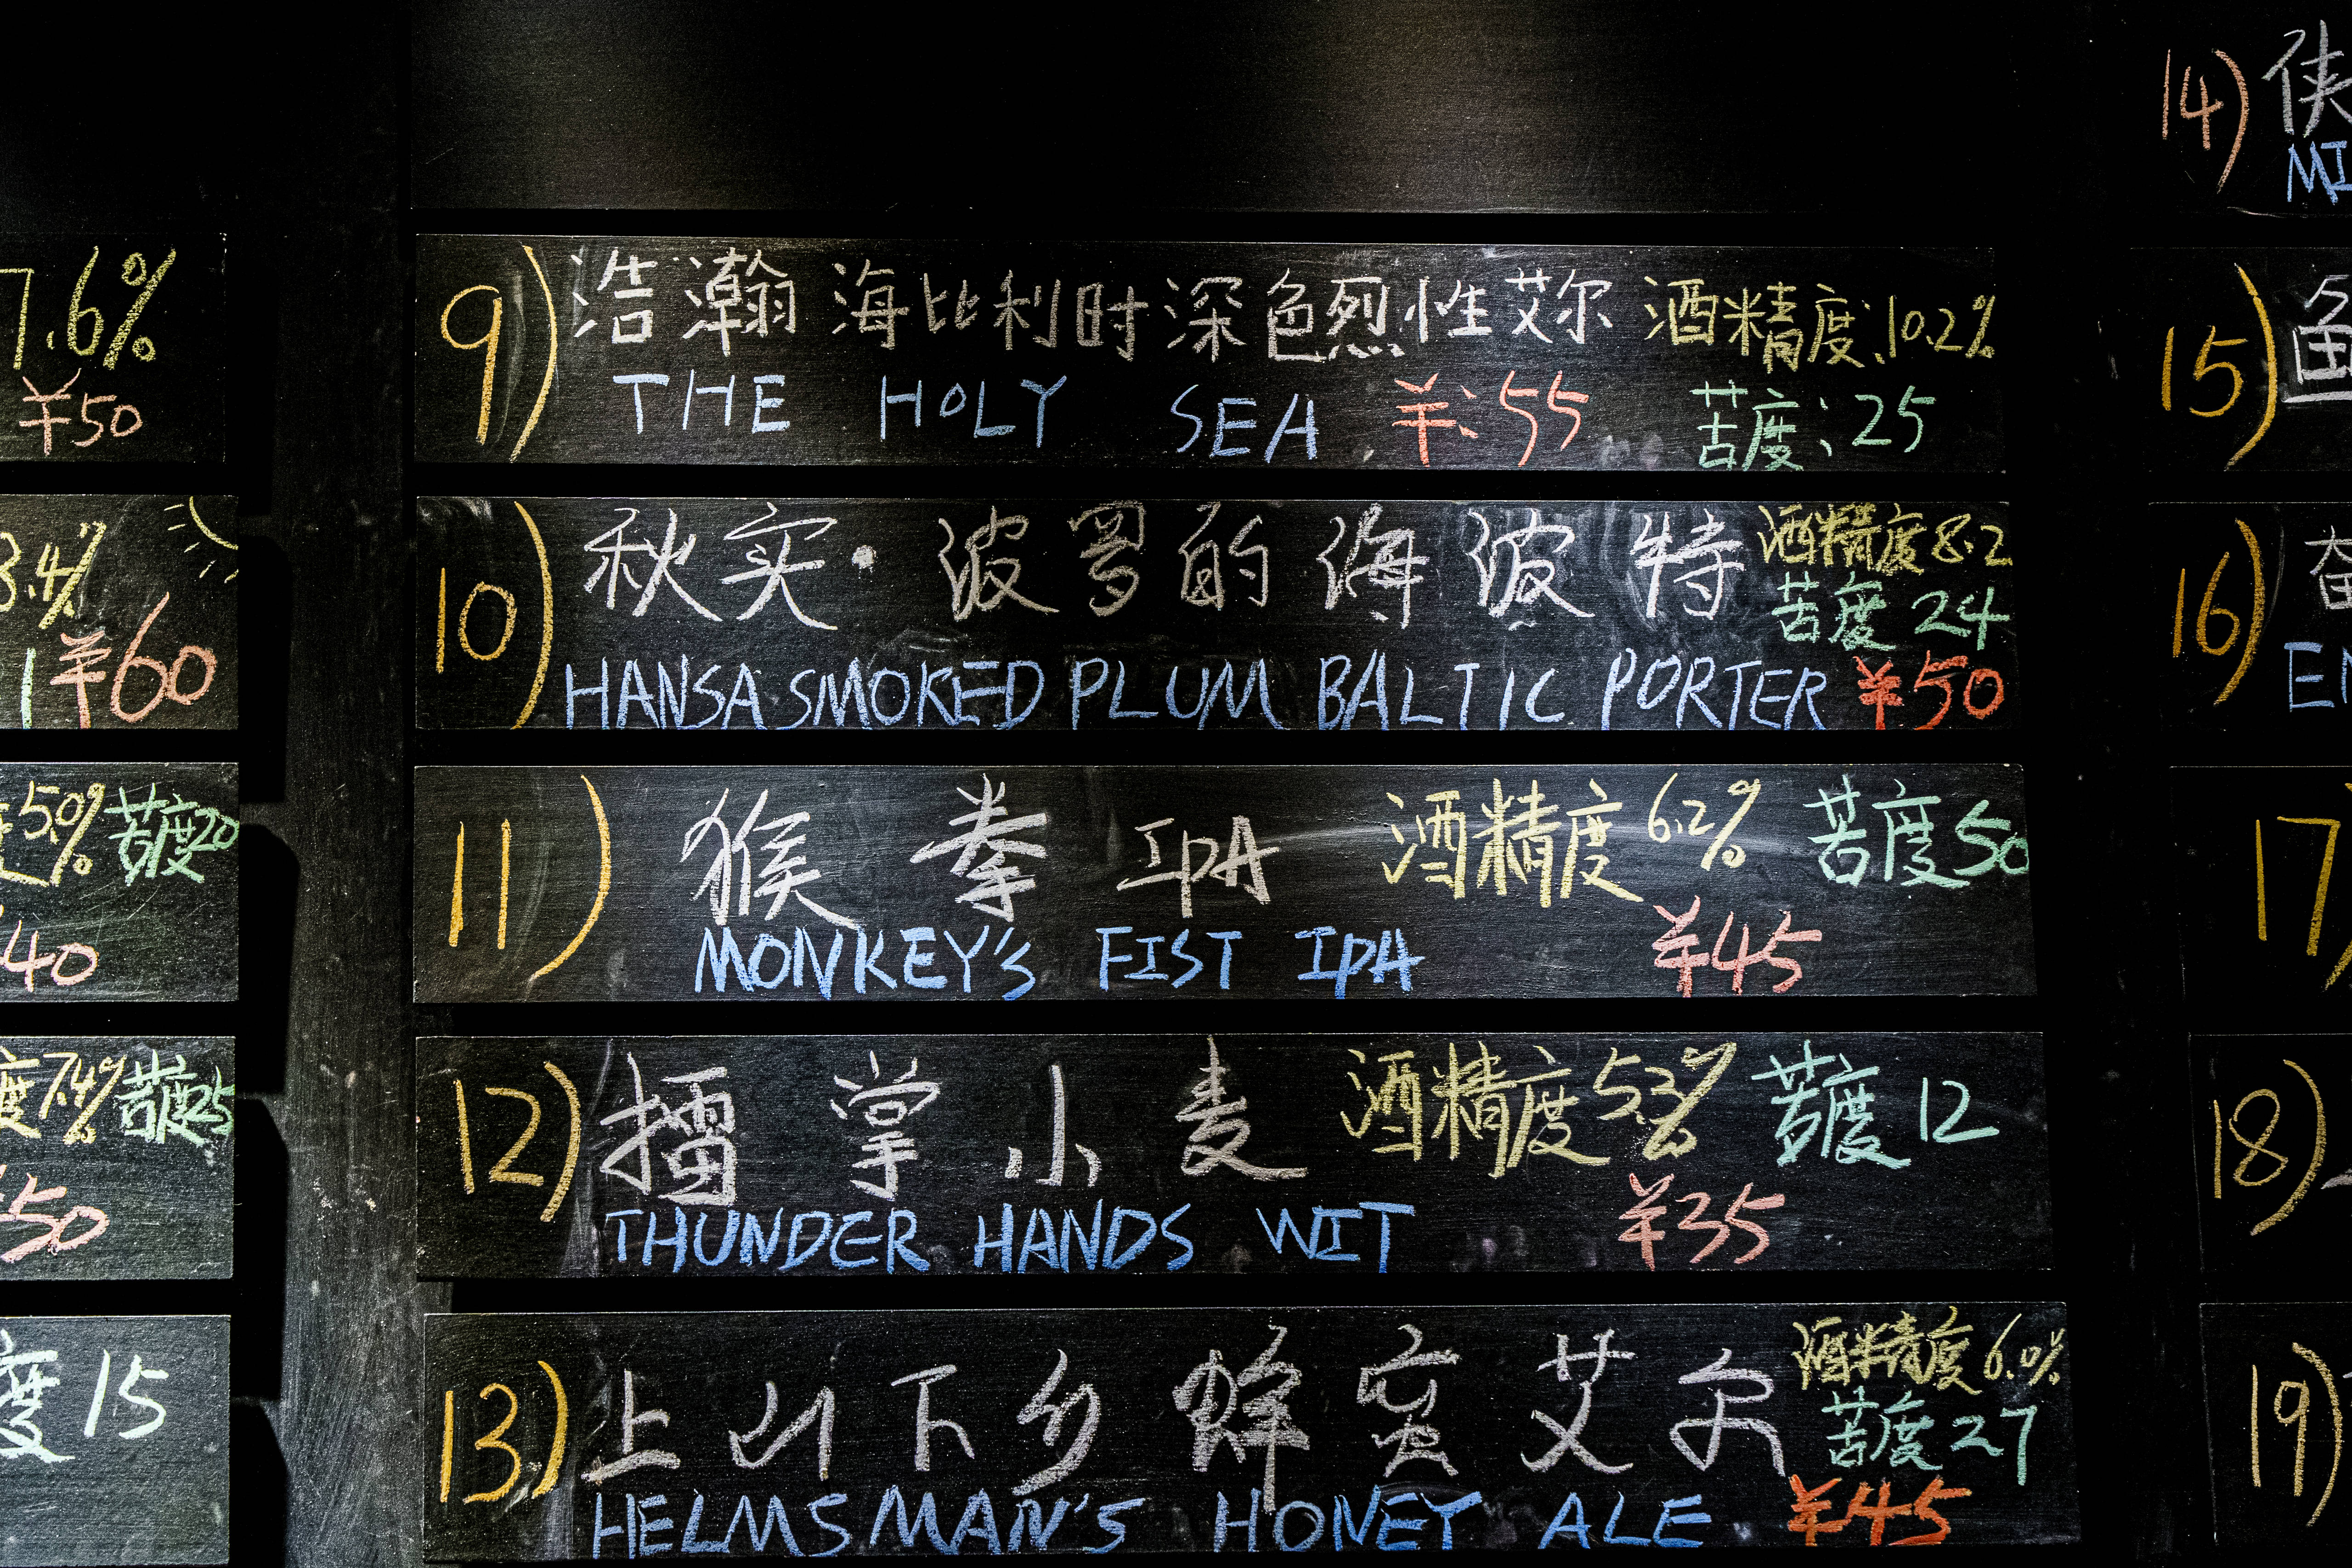 7.6%
¥50
3.4%
1 ¥60
5.0% 苦度20
40
度7.4% 苦度25
50
度 15
9) 浩瀚海比利时深色烈性艾尔 酒精度:10.2%
THE HOLY SEA ¥:55 苦度:25
10) 秋实·波罗的海波特 酒精度8.2
苦度 24
HANSA SMOKED PLUM BALTIC PORTER ¥50
11) 猴拳 IPA 酒精度6.2% 苦度50
MONKEY'S FIST IPA ¥45
12) 擂掌小麦 酒精度5.3% 苦度12
THUNDER HANDS WIT ¥35
13) 上山下乡蜂蜜艾尔 酒精度6.0%
苦度27
HELMSMAN'S HONEY ALE ¥45
14) 侠
MI
15)
16)
EN
17
18)
19)